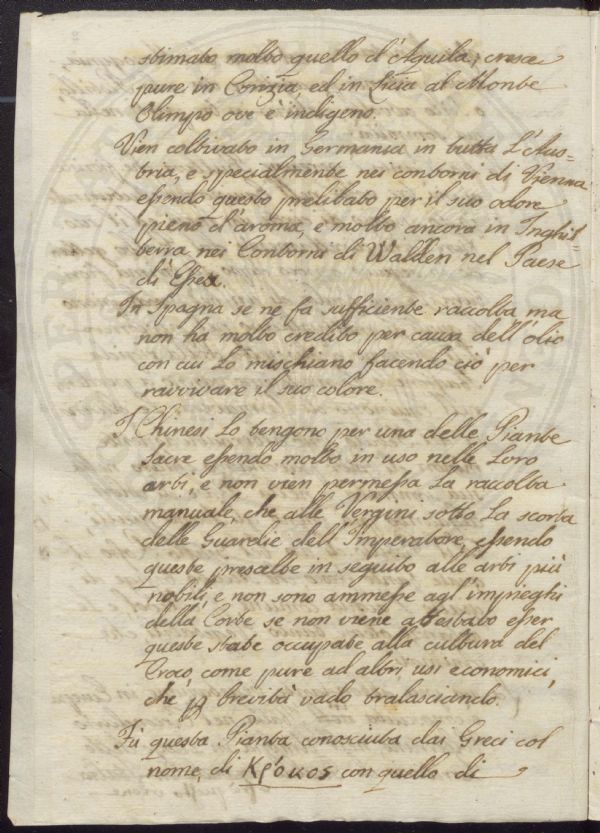 stimato molto quello d'Aquila; cresce
pure in Corizia, ed in Licia al Monte
Olimpo ove è indigeno.
Vien coltivato in Germania in tutta L'Aus=
tria, e specialmente nei contorni di Vienna
essendo questo prelibato per il suo odore
pieno d'aroma, e molto ancora in Inghil=
terra, nei Contorni di Walden nel Paese
di Essex.
In Spagna se ne fa sufficiente raccolta ma
non ha molto credito per causa dell'olio
con cui Lo mischiano facendo ciò per
ravvivare il suo colore.
I Chinesi Lo tengono per una delle Piante
Sacre essendo molto in uso nelle Loro
arti, e non vien permessa La raccolta
manuale, che alle Vergini sotto La scorta
delle Guardie dell'Imperatore, essendo
queste prescelte in seguito alle arti più
nobili, e non sono ammesse agl'impieghi
della Corte se non viene attestato esser
queste state occupate alla cultura del
Croco, come pure ad altri usi economici,
che p brevità vado tralasciando.
Fù questa Pianta conosciuta dai Greci col
nome, di Κρόκος con quello di